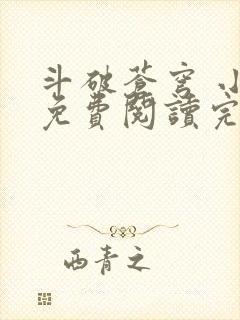 斗破蒼穹 小
免費閱讀完
西青之